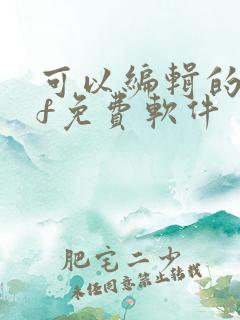 可以編輯的
f免費軟件
肥宅二少
未经同意禁止转载